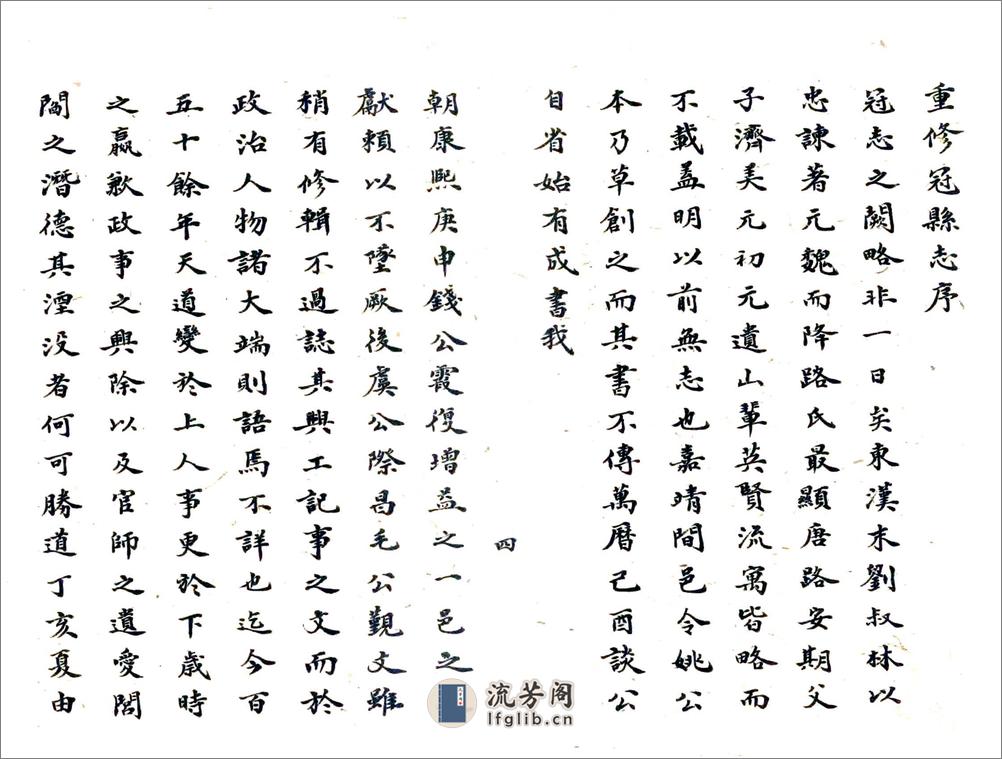 重修冠縣志序
冠志之闕略非一日矣東漢末劉叔林以
忠諫著元魏而降路氏最顯唐路安期父
子濟美元初元遺山輩英賢流寓皆略而
不載盖明以前無志也嘉靖間邑令姚公
本乃草創之而其書不傳萬曆己酉談公
自省始有成書我
四
朝康熙庚申錢公霞復增益之一邑之
獻賴以不墜厥後虞公際昌毛公覲文雖
稍有修輯不過誌其興工記事之文而於
政治人物諸大端則語焉不詳也迄今百
五十餘年天道變於上人事更於下歲時
之贏歉政事之興除以及官師之遺愛閭
閻之潛德其湮没者何可勝道丁亥夏由
流芳阁
lfglib.cn